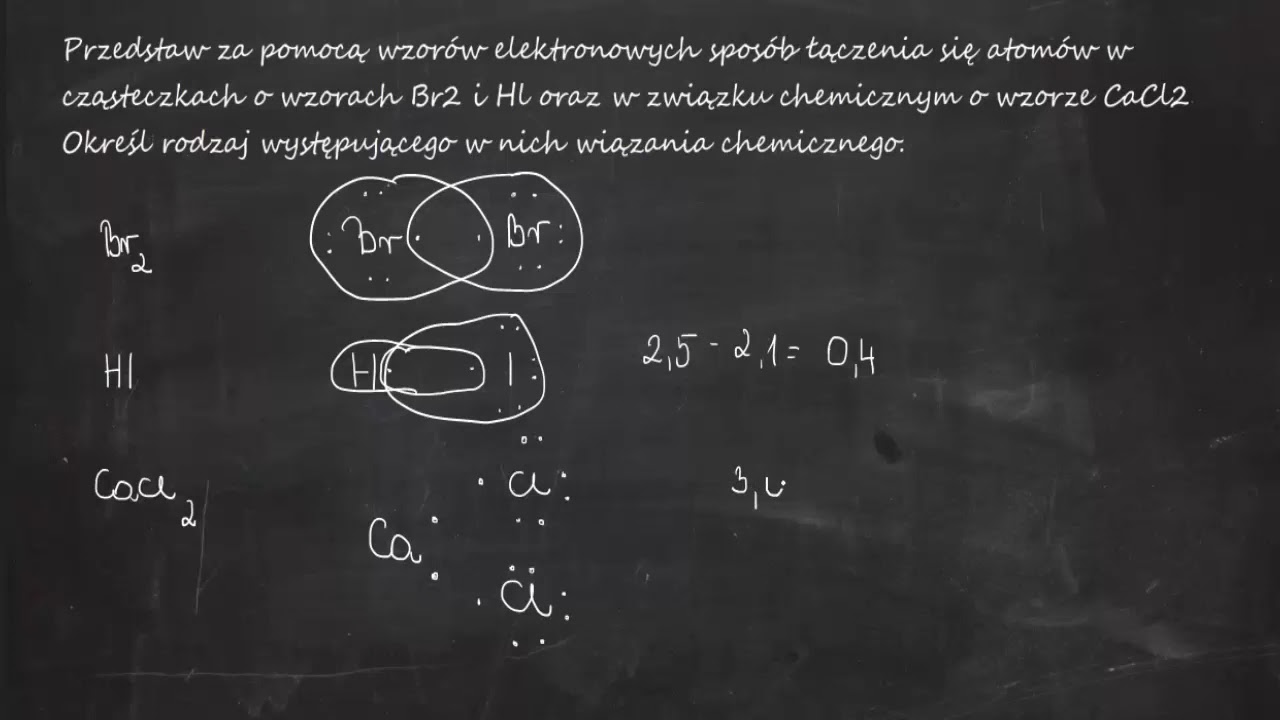 Przedstaw za pomocą wzorów elektronowych sposób łączenia się atomów w
cząsteczkach o wzorach Br2 i Hl oraz w związku chemicznym o wzorze CaCl2
Określ rodzaj występującego w nich wiązania chemicznego.
Br2 Br Br
Hl H l 2,5 - 2,1 = 0,4
CaCl2 Cl 3,
Ca
Cl